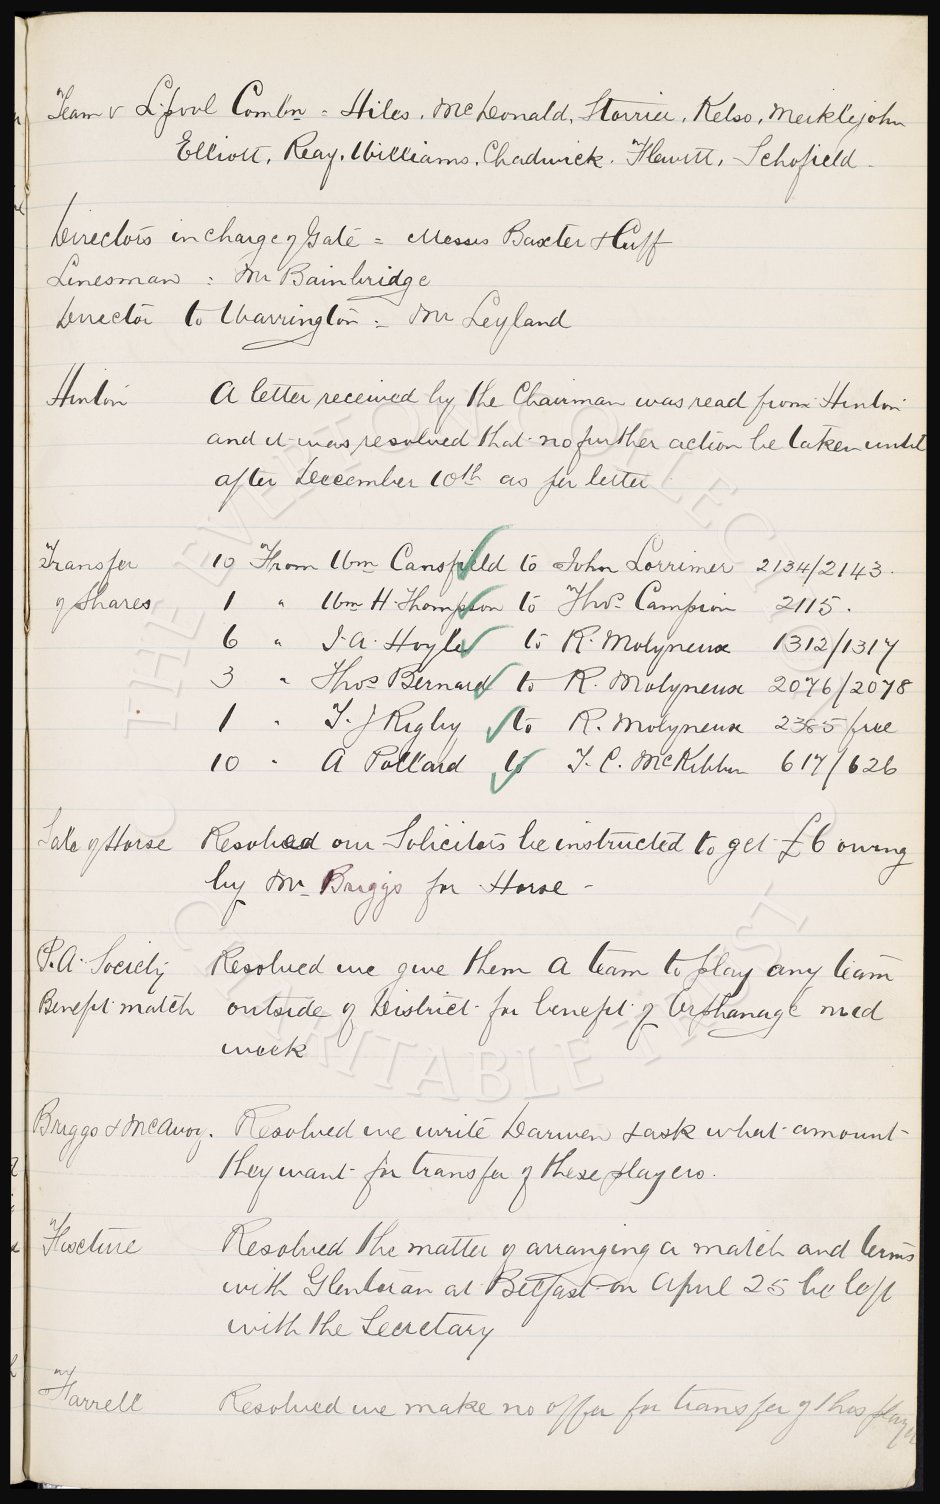 Team v L'pool Combn = Hiles. McDonald, Storrier, Kelso, Meiklejohn
Elliott, Reay, Williams, Chadwick. Flewitt, Schofield.
Directors in charge of Gate = Messrs Baxter & Cuff
Linesman = Mr Bainbridge
Director to Warrington = Mr Leyland
Hinton A letter received by the Chairman was read from Hinton
and it was resolved that no further action be taken until
after December 10th as per letter
Transfer 10 From Wm Cansfield to John Lorrimer 2134/2143.
of Shares 1 " Wm H. Thompson to Thos. Campion 2115.
6 " J. A. Hoyle to R. Molyneux 1312/1317
3 " Thos Bernard to R. Molyneux 2076/2078
1 " T. J Rigby to R. Molyneux 2365 free
10 " A Pollard to T. C. McKibbin 617/626
Sale of Horse Resolved our Solicitors be instructed to get £6 owing
by Mr Briggs for Horse -
P.A. Society Resolved we give them a team to play any team
Benefit match outside of District for benefit of Orphanage mid
week
Briggs & McAvoy. Resolved we write Darwen & ask what amount
they want for transfer of these players.
Fixture Resolved the matter of arranging a match and terms
with Glentoran at Belfast on April 25 be left
with the Secretary
Farrell Resolved we make no offer for transfer of this player
THE EVERTON COLLECTION
CHARITABLE TRUST